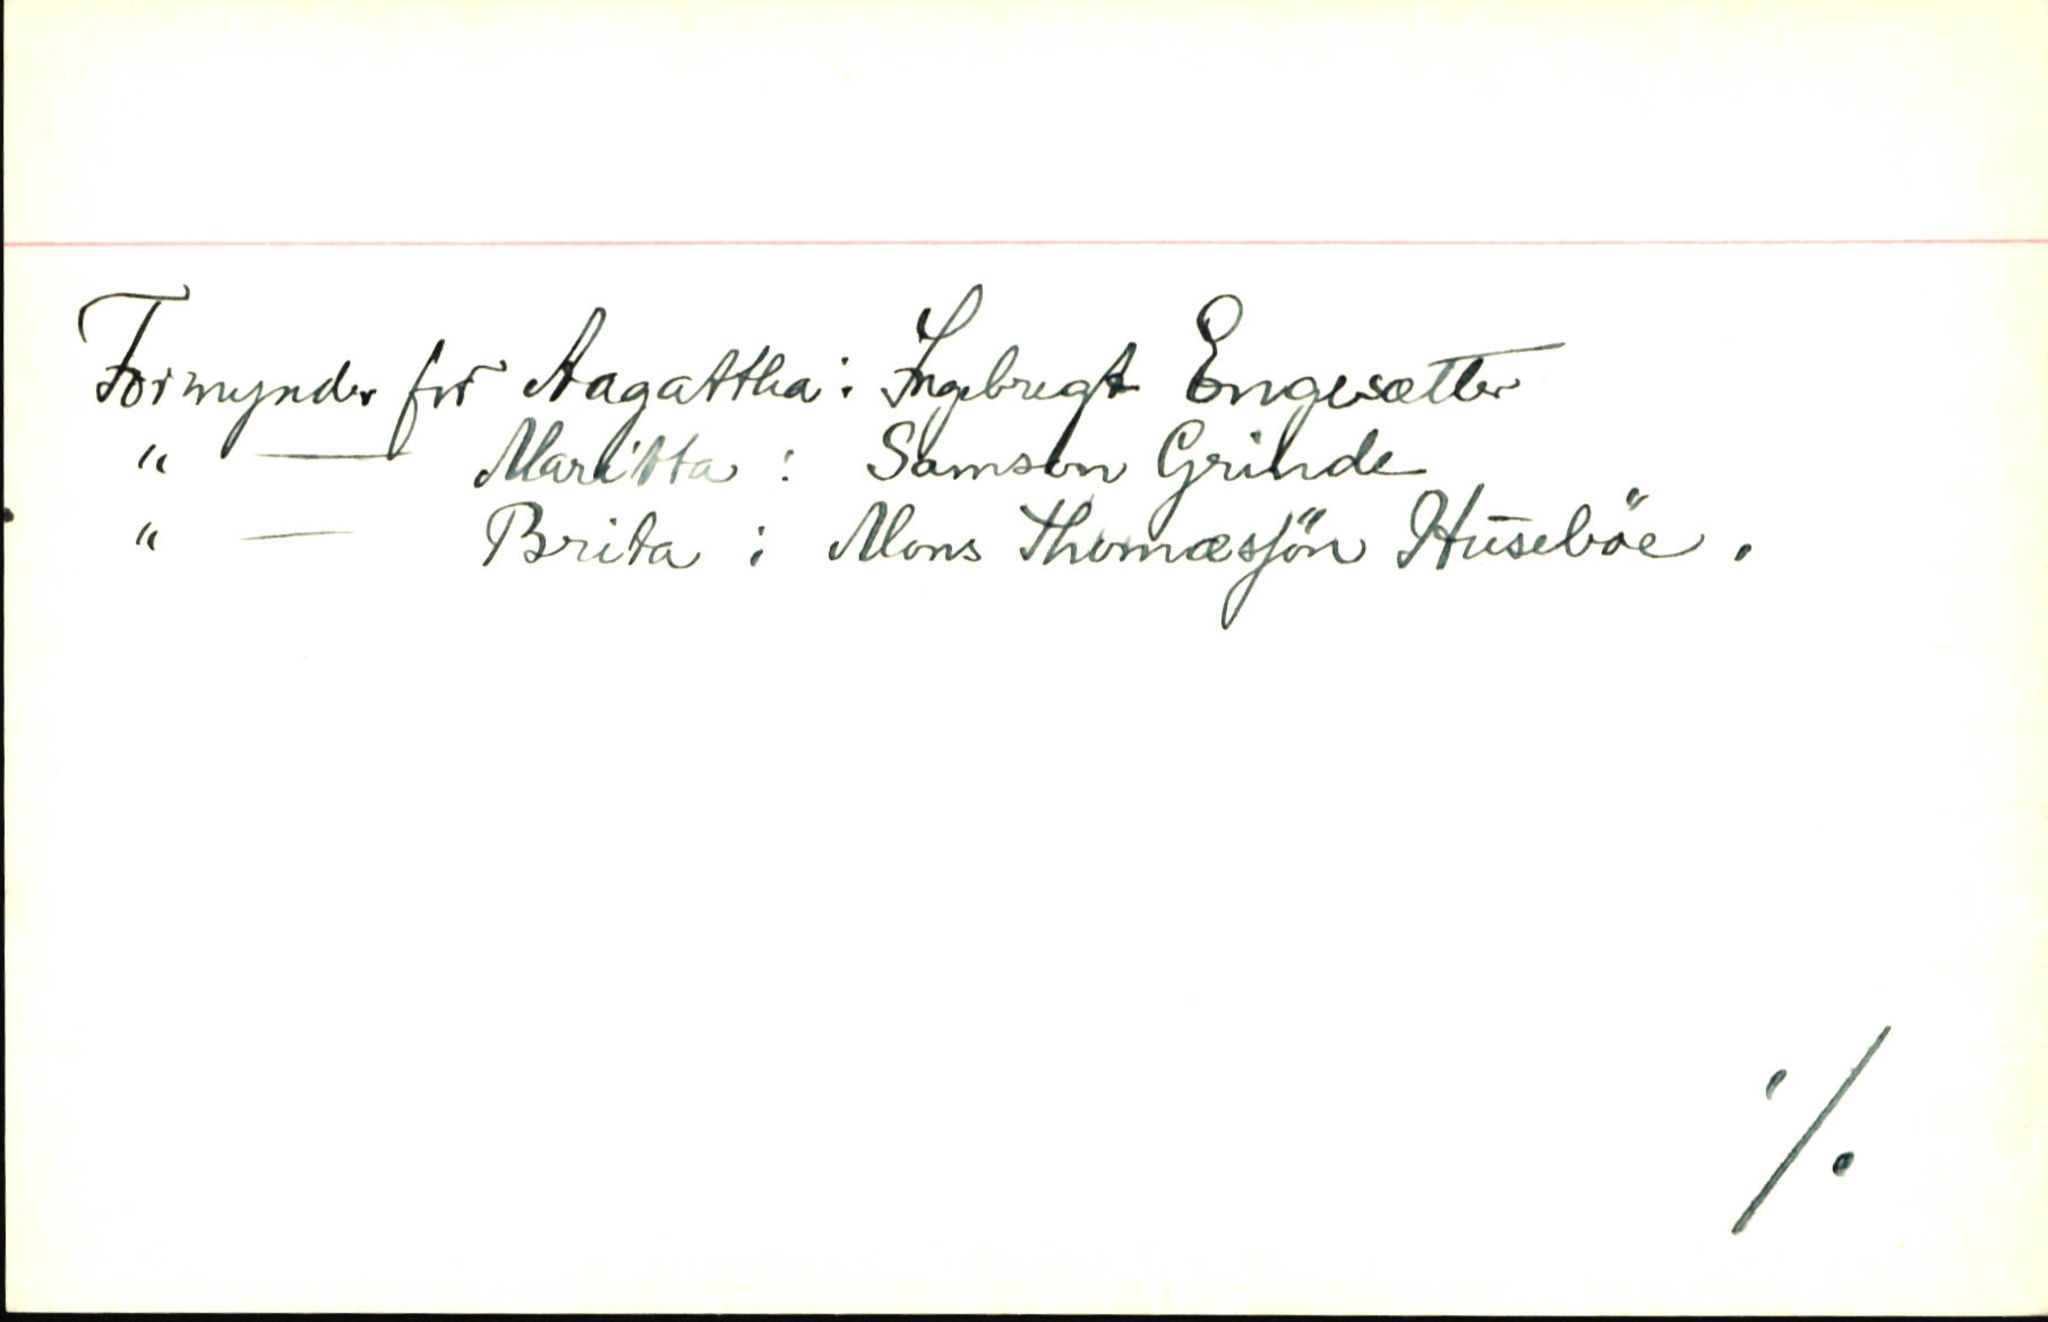 Formynder for Aagattha: Ingebregt Engesætter
" — Maritta: Samson Grinde
" — Brita: Mons Thomæsjön Huseböe.
·/.